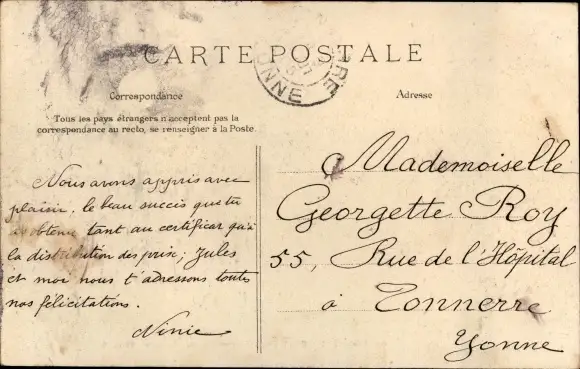 CARTE POSTALE
Correspondance
Adresse
Tous les pays étrangers n'acceptent pas la
correspondance au recto, se renseigner à la Poste.
Nous avons appris avec
plaisir, le beau succès que tu
as obtenu tant au certificat qu'à
la distribution des prix; Jules
et moi nous t'adressons toutes
nos félicitations.
Ninie
Mademoiselle
Georgette Roy
55, Rue de l'Hôpital
à Tonnerre
Yonne